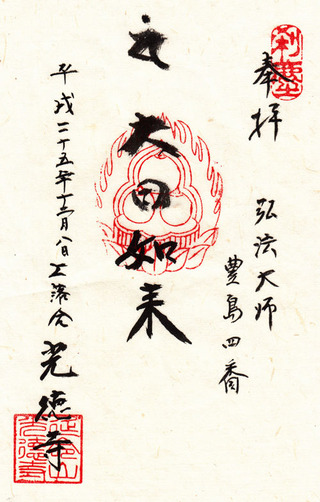 奉拝
弘法大師
豊島四番
大日如来
平成二十五年十二月八日
上落合
光徳寺